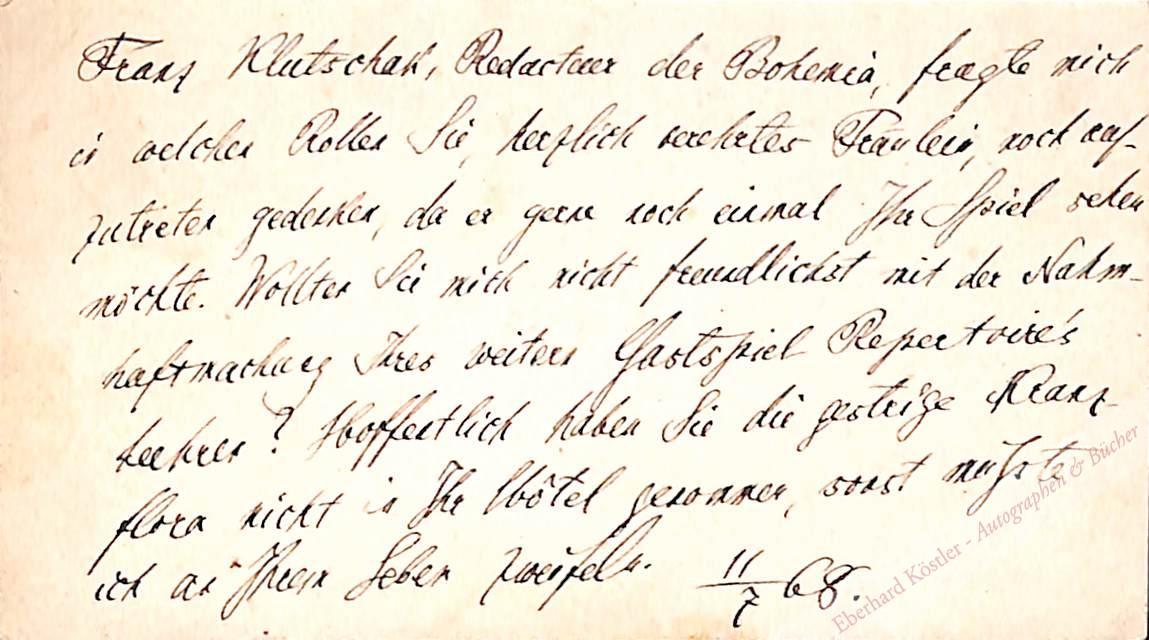 Franz Klutschak, Redacteur der Bohemia, fragte mich
in welchen Rollen Sie, herzlich verehrtes Fräulein, noch auf-
zutreten gedenken, da er gerne noch einmal Ihr Spiel sehen
möchte. Wollten Sie mich nicht freundlichst mit der Nahm-
haftmachung Ihres weitern Gastspiel Repertoire's
beehren? Hoffentlich haben Sie die gestrige Kranz-
flora nicht in Ihr Hôtel genommen, sonst müßte
ich an Ihrem Leben zweifeln. 11/7 68.
Eberhard Köstler - Autographen & Bücher